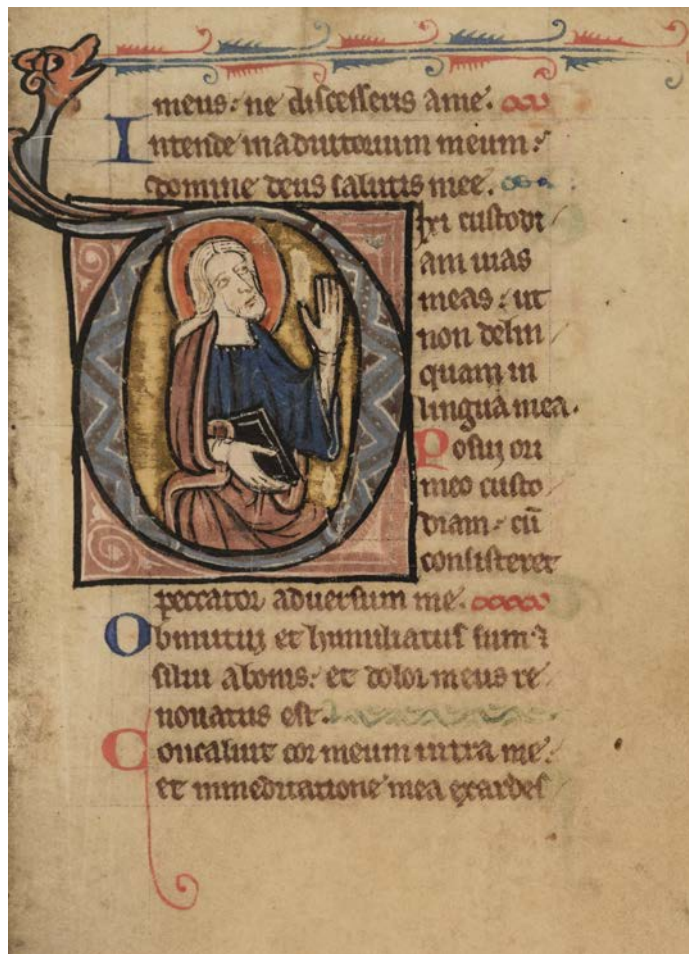 meus: ne discesseris a me.
Intende in adiutorium meum:
domine deus salutis mee.
Dixi custodi
am uias
meas: ut
non delin
quam in
lingua mea.
Posui ori
meo custo
diam: cū
consisteret
peccator aduersum me.
Obmutui et humiliatus sum: ⁊
silui a bonis: et dolor meus re
nouatus est.
Concaluit cor meum intra me:
et in meditatione mea exardes